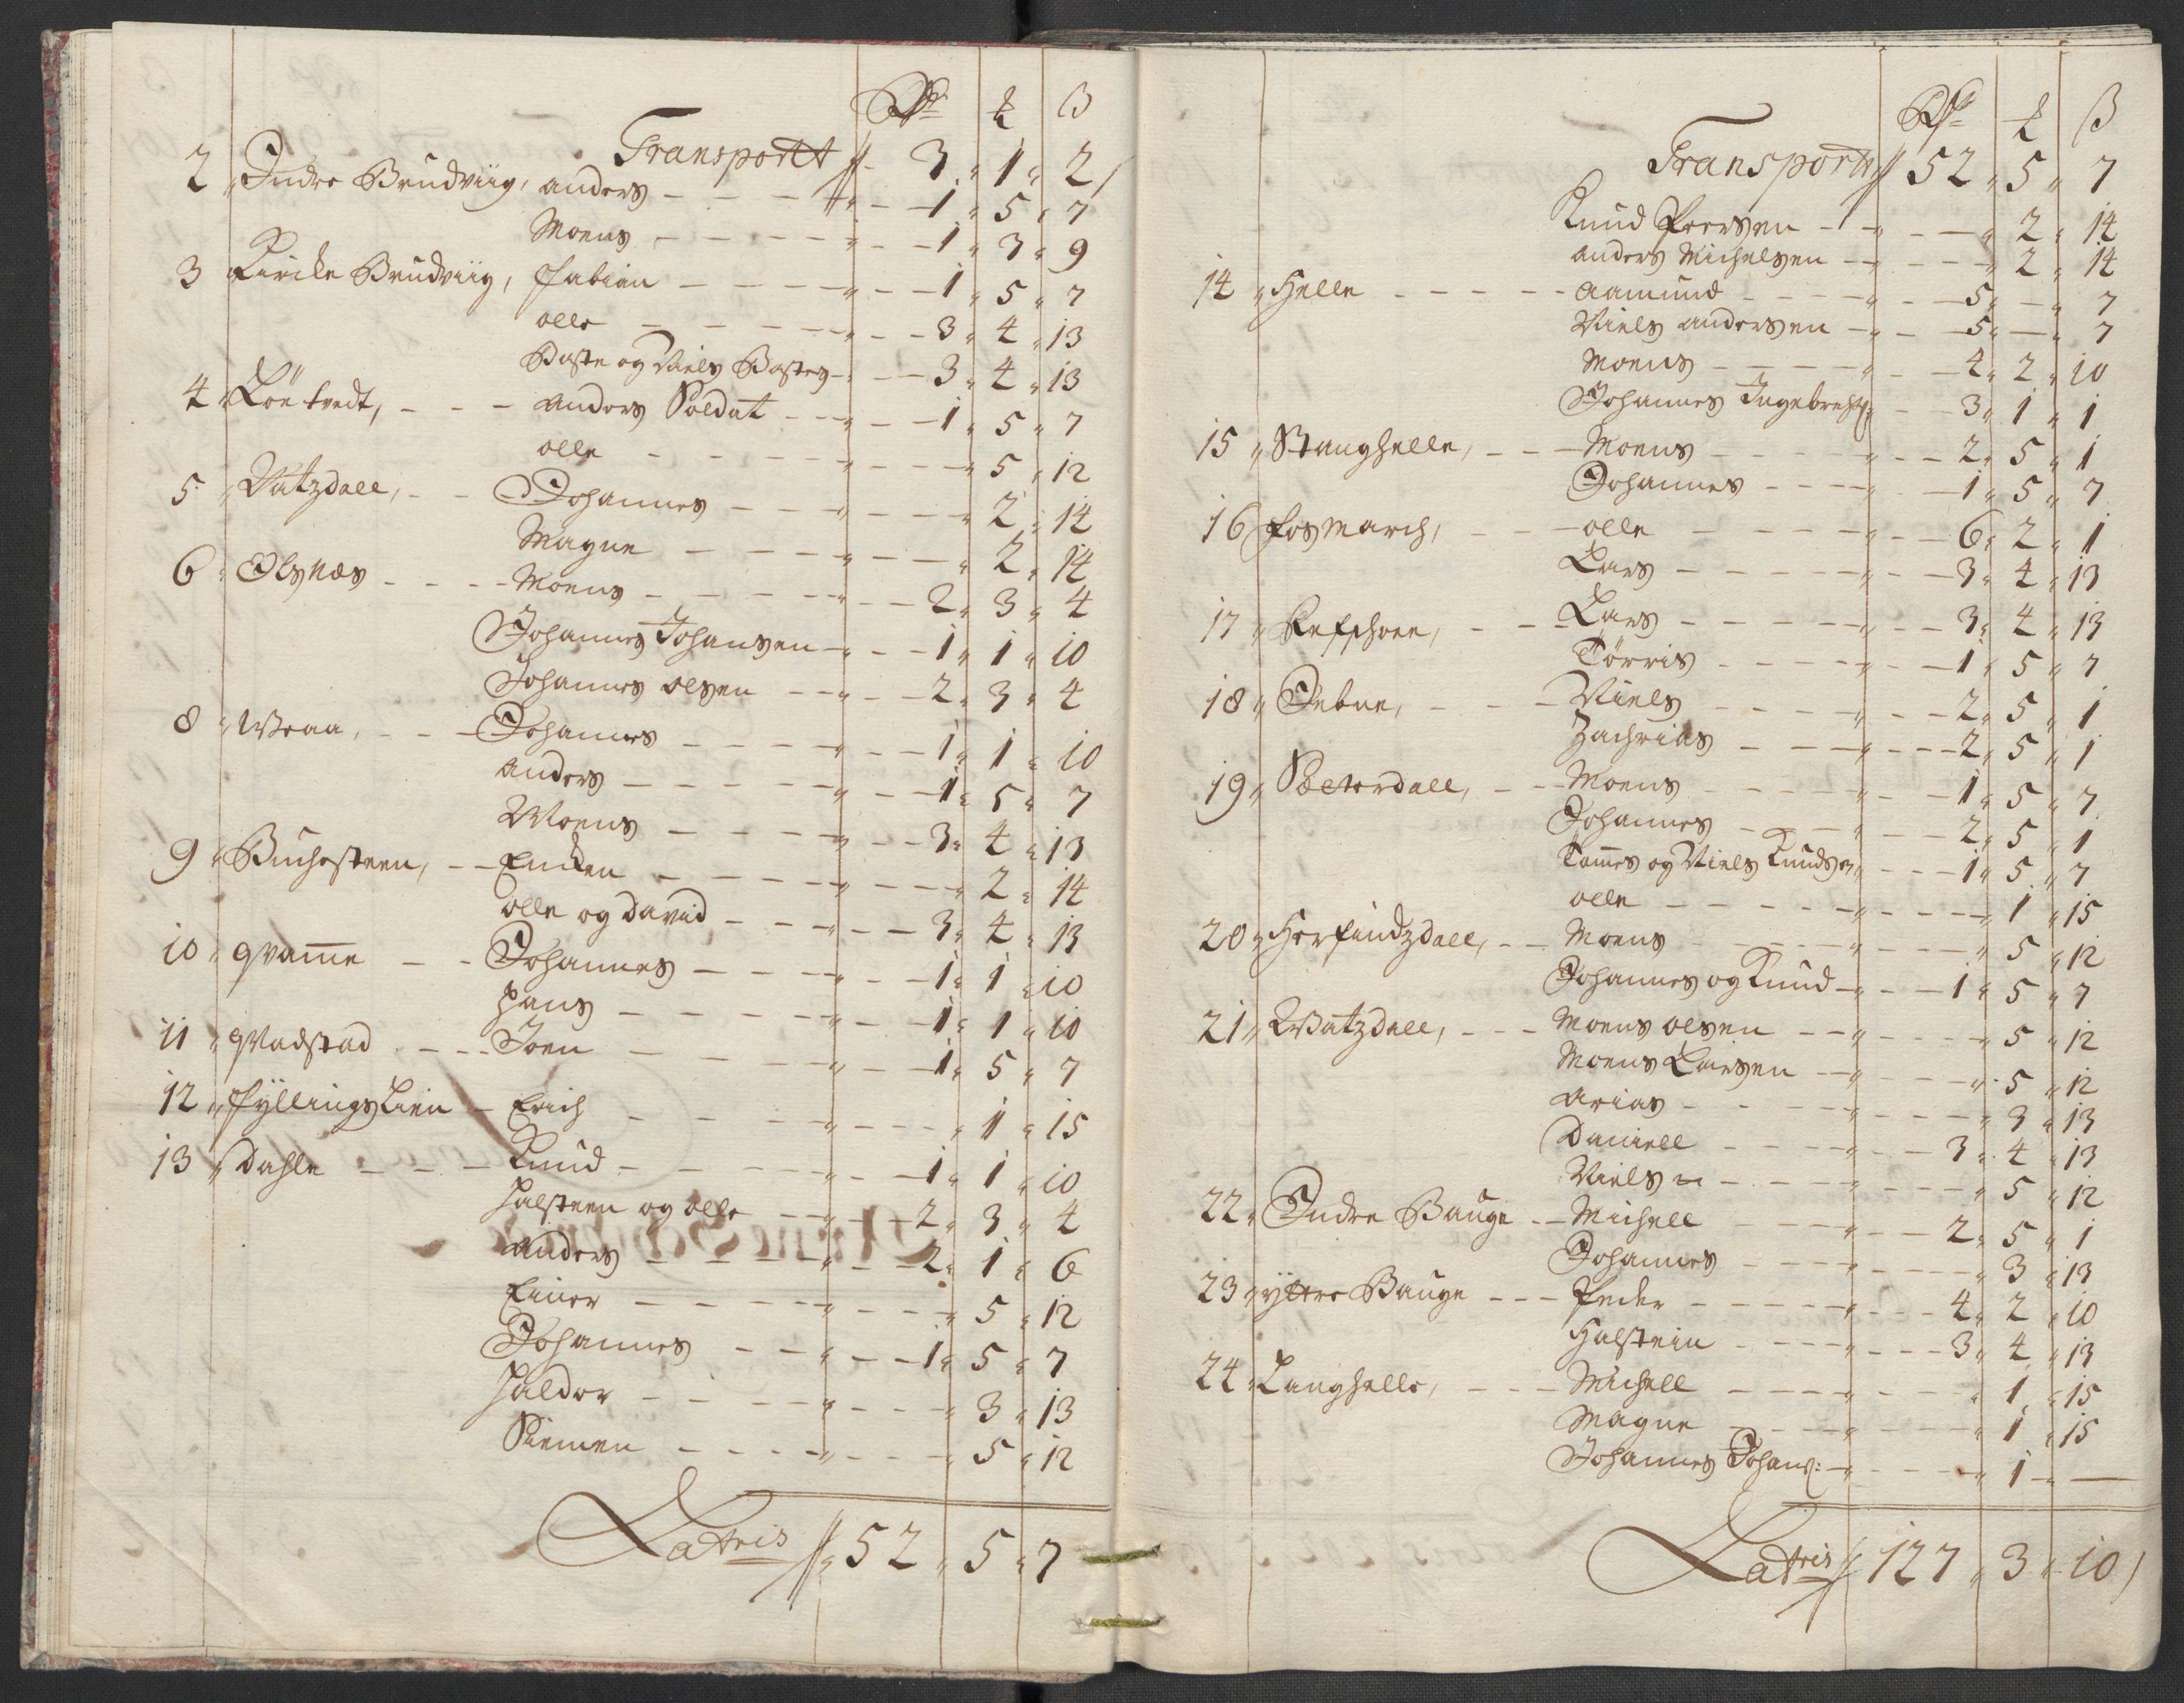 Rdr ₰ ß
Transportt 3 1 2
2 Indre Brudviig, anders 1 5 7
Moens 1 3 9
3 Kircke Brudviig, Fabian 1 5 7
olle 3 4 13
Baste og Niels Bastes 3 4 13
4 Löetvedt, anders Soldat 1 5 7
olle 5 12
5 Vatzdall, Johannes 2 14
Magne 2 14
6 Olsnæs Moens 2 3 4
Johannes Johansen 1 1 10
Johannes olsen 2 3 4
8 Wraa, Johannes 1 1 10
anders 1 5 7
Moens 3 4 13
9 Buchesteen, Encken 2 14
olle og david 3 4 13
10 qvam̄e Johannes 1 1 10
hans 1 1 10
11 qvadstad Joen 1 5 7
12 fyllingslien Erich 1 15
13 Dahle Knud 1 1 10
halsteen og olle 2 3 4
anders 2 1 6
Einer 5 12
Johannes 1 5 7
haldor 3 13
Siemen 5 12
Latris 52 5 7
Rdr ₰ ß
Transport 52 5 7
Knud Peersen 2 14
anders Michelsen 2 14
14 Helle aamund 5 - 7
Niels andersen 5 - 7
Moens 4 2 10
Johannes Ingebrehts: 3 1 1
15 Stanghelle, Moens 2 5 1
Johannes 1 5 7
16 fosmarch, olle 6 2 1
Lars 3 4 13
17 Refschoen, Lars 3 4 13
Törris 1 5 7
18 Jebne, Niels 2 5 1
Zachrias 2 5 1
19 Sæterdall, Moens 1 5 7
Johannes 2 5 1
Tom̄es og Niels Knudsen 1 5 7
olle 1 15
20 Herfindzdall, Moens 5 12
Johannes og Knud 1 5 7
21 Watzdall, Moens olsen 5 12
Moens Larsen 5 12
arias 3 13
Daniell 3 4 13
Niels 5 12
22 Indre Bauge Michell 2 5 1
Johannes 3 13
23 yttre Bauge Peder 4 2 10
Halstein 3 4 13
24 Langhelle, Michell 1 15
Magne 1 15
Johannes Johans: 1 -
Latris 127 3 10